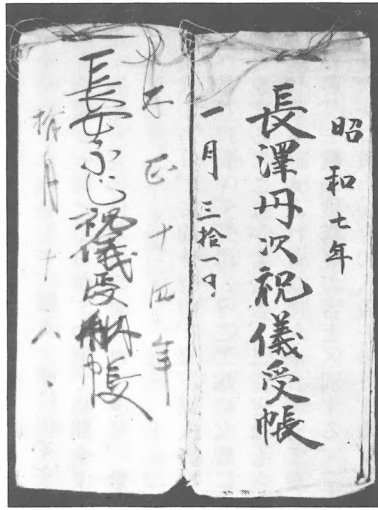 昭和七年
長澤丹次祝儀受帳
一月三拾一日
大正十四年
長女ふじ祝儀受納帳
拾月十八、